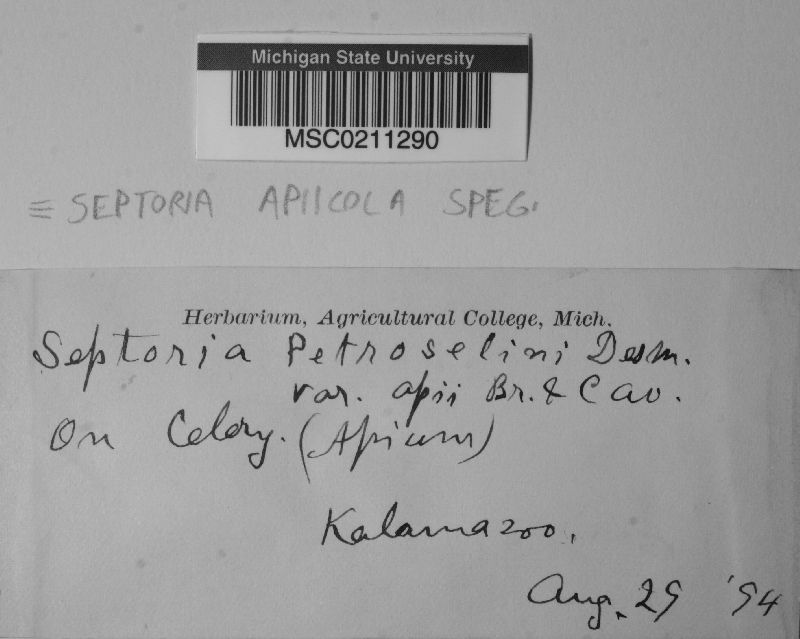 Michigan State University
MSC0211290
≡ SEPTORIA APIICOLA SPEG.
Herbarium, Agricultural College, Mich.
Septoria Petroselini Desm.
var. apii Br. & Cav.
On Celery. (Apium)
Kalamazoo.
Aug. 29 '94